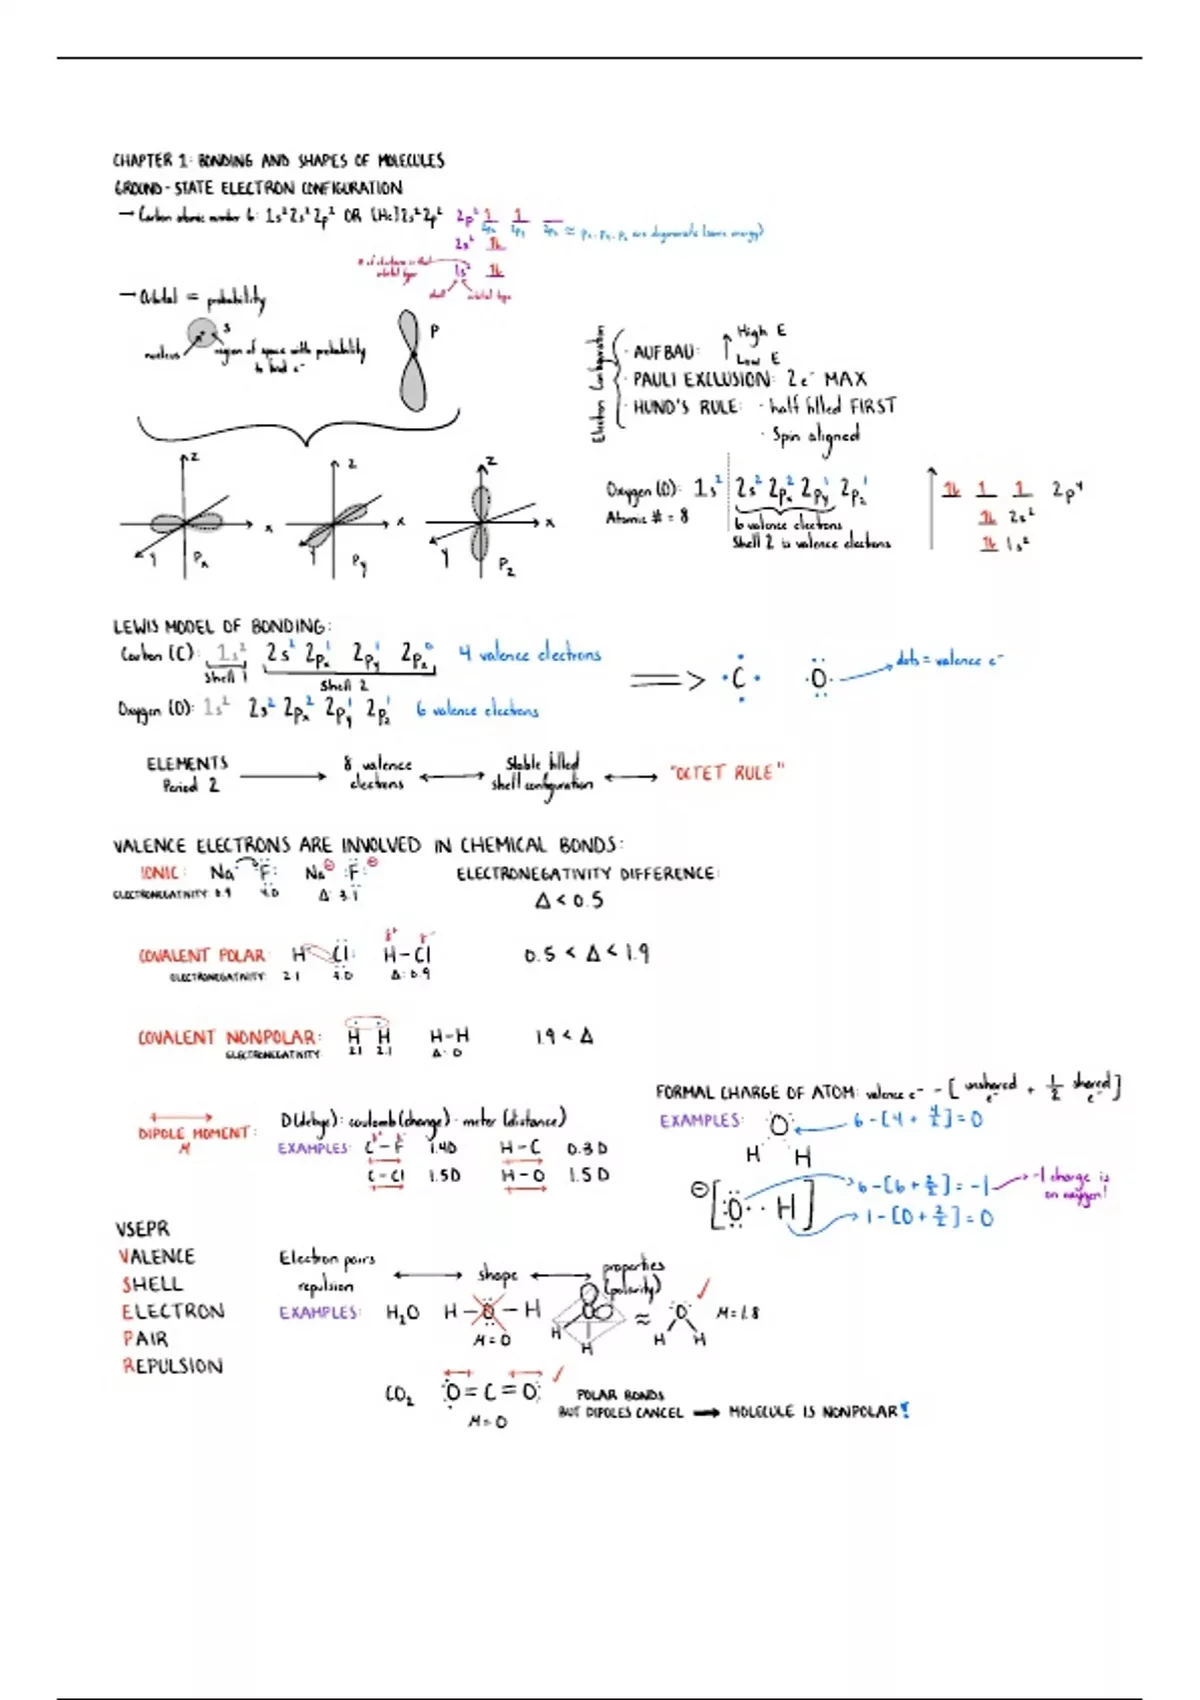 CHAPTER 1: BONDING AND SHAPES OF MOLECULES
GROUND-STATE ELECTRON CONFIGURATION
→ Carbon atomic number 6: 1s² 2s² 2p² OR [He] 2s² 2p²
2p² 1 1
2px 2py 2pz ≈ px, py, pz are degenerate (same energy)
2s² 1L
# of electrons in that orbital type
1s² 1L
shell orbital type
→ Orbital = probability
s
nucleus
region of space with probability
to find e⁻
P
Z X Y Px
Z X Y Py
Z X Y Pz
Electron Configuration
· AUFBAU: High E
Low E
· PAULI EXCLUSION: 2e⁻ MAX
· HUND'S RULE: · half filled FIRST
· Spin aligned
Oxygen (O): 1s² 2s² 2px² 2py¹ 2pz¹
Atomic # = 8
6 valence electrons
Shell 2 is valence electrons
1L 1 1 2p⁴
1L 2s²
1L 1s²
LEWIS MODEL OF BONDING:
Carbon (C): 1s² 2s² 2px¹ 2py¹ 2pz⁰ 4 valence electrons
Shell 1 Shell 2
C O dots = valence e⁻
Oxygen (O): 1s² 2s² 2px² 2py¹ 2pz¹ 6 valence electrons
ELEMENTS
Period 2
8 valence
electrons
Stable filled
shell configuration
"OCTET RULE"
VALENCE ELECTRONS ARE INVOLVED IN CHEMICAL BONDS:
IONIC: Na F: Na⊕ :F:⊖
ELECTRONEGATIVITY 0.9 4.0 Δ: 3.1
ELECTRONEGATIVITY DIFFERENCE:
Δ < 0.5
COVALENT POLAR: H Cl: H-Cl
δ⁺ δ⁻
ELECTRONEGATIVITY 2.1 Δ: 0.9
0.5 < Δ < 1.9
COVALENT NONPOLAR: H H H-H
ELECTRONEGATIVITY 2.1 2.1 Δ: 0
1.9 < Δ
DIPOLE MOMENT:
M
D(debye): coulomb (charge) · meter (distance)
EXAMPLES: C-F 1.4D H-C 0.3D
C-Cl 1.5D H-O 1.5D
FORMAL CHARGE OF ATOM: valence e⁻ - [unshared e⁻ + 1/2 shared e⁻]
EXAMPLES: O 6-[4+4/2]=0
H H
⊖[:O··H]
6-[6+2/2]=-1 -1 charge is
on oxygen!
1-[0+2/2]=0
VSEPR
VALENCE
SHELL
ELECTRON
PAIR
REPULSION
Electron pairs
repulsion
shape
properties
(polarity)
EXAMPLES: H₂O H-O-H
M=0
O H H ≈ O H H M=1.8
CO₂ O=C=O
M=0
POLAR BONDS
BUT DIPOLES CANCEL → MOLECULE IS NONPOLAR!